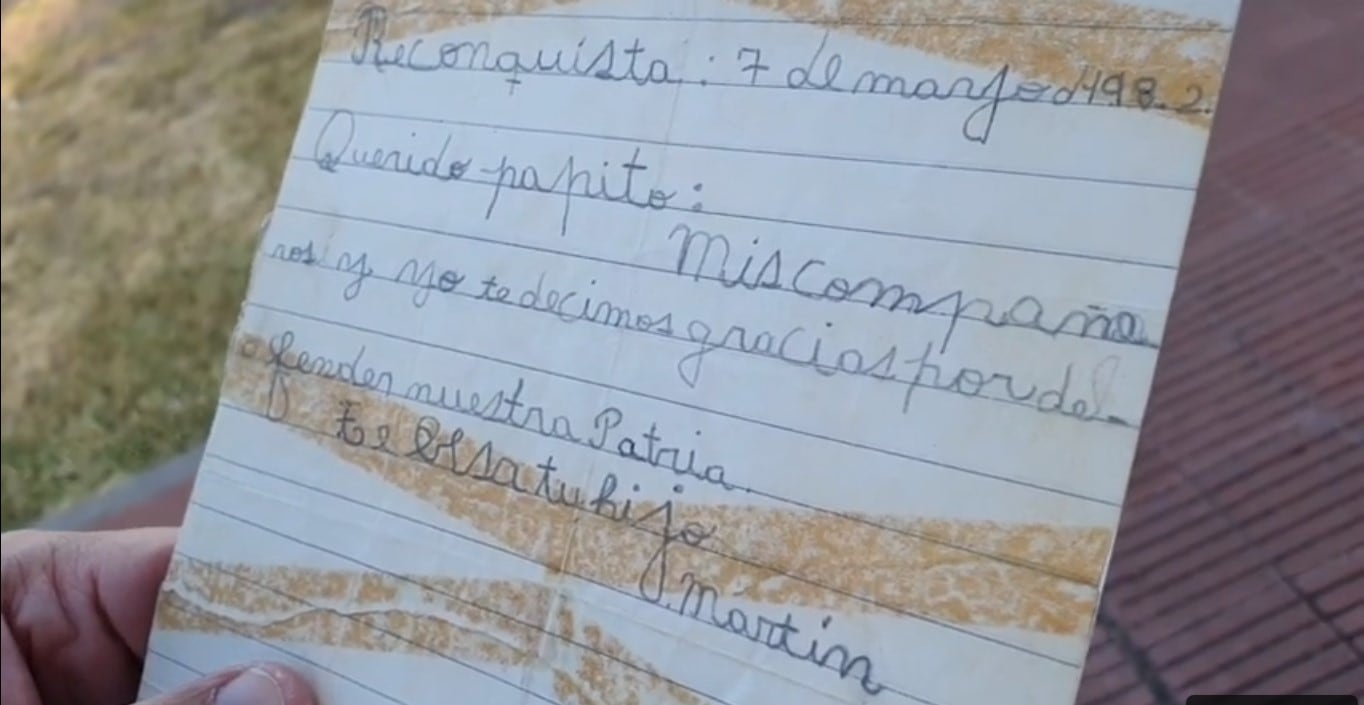 Reconquista: 7 de mayo d 1982.
Querido papito:
Mis compañe
ros y yo te decimos gracias por de
fender nuestra Patria.
te besa tu hijo
J. Martin